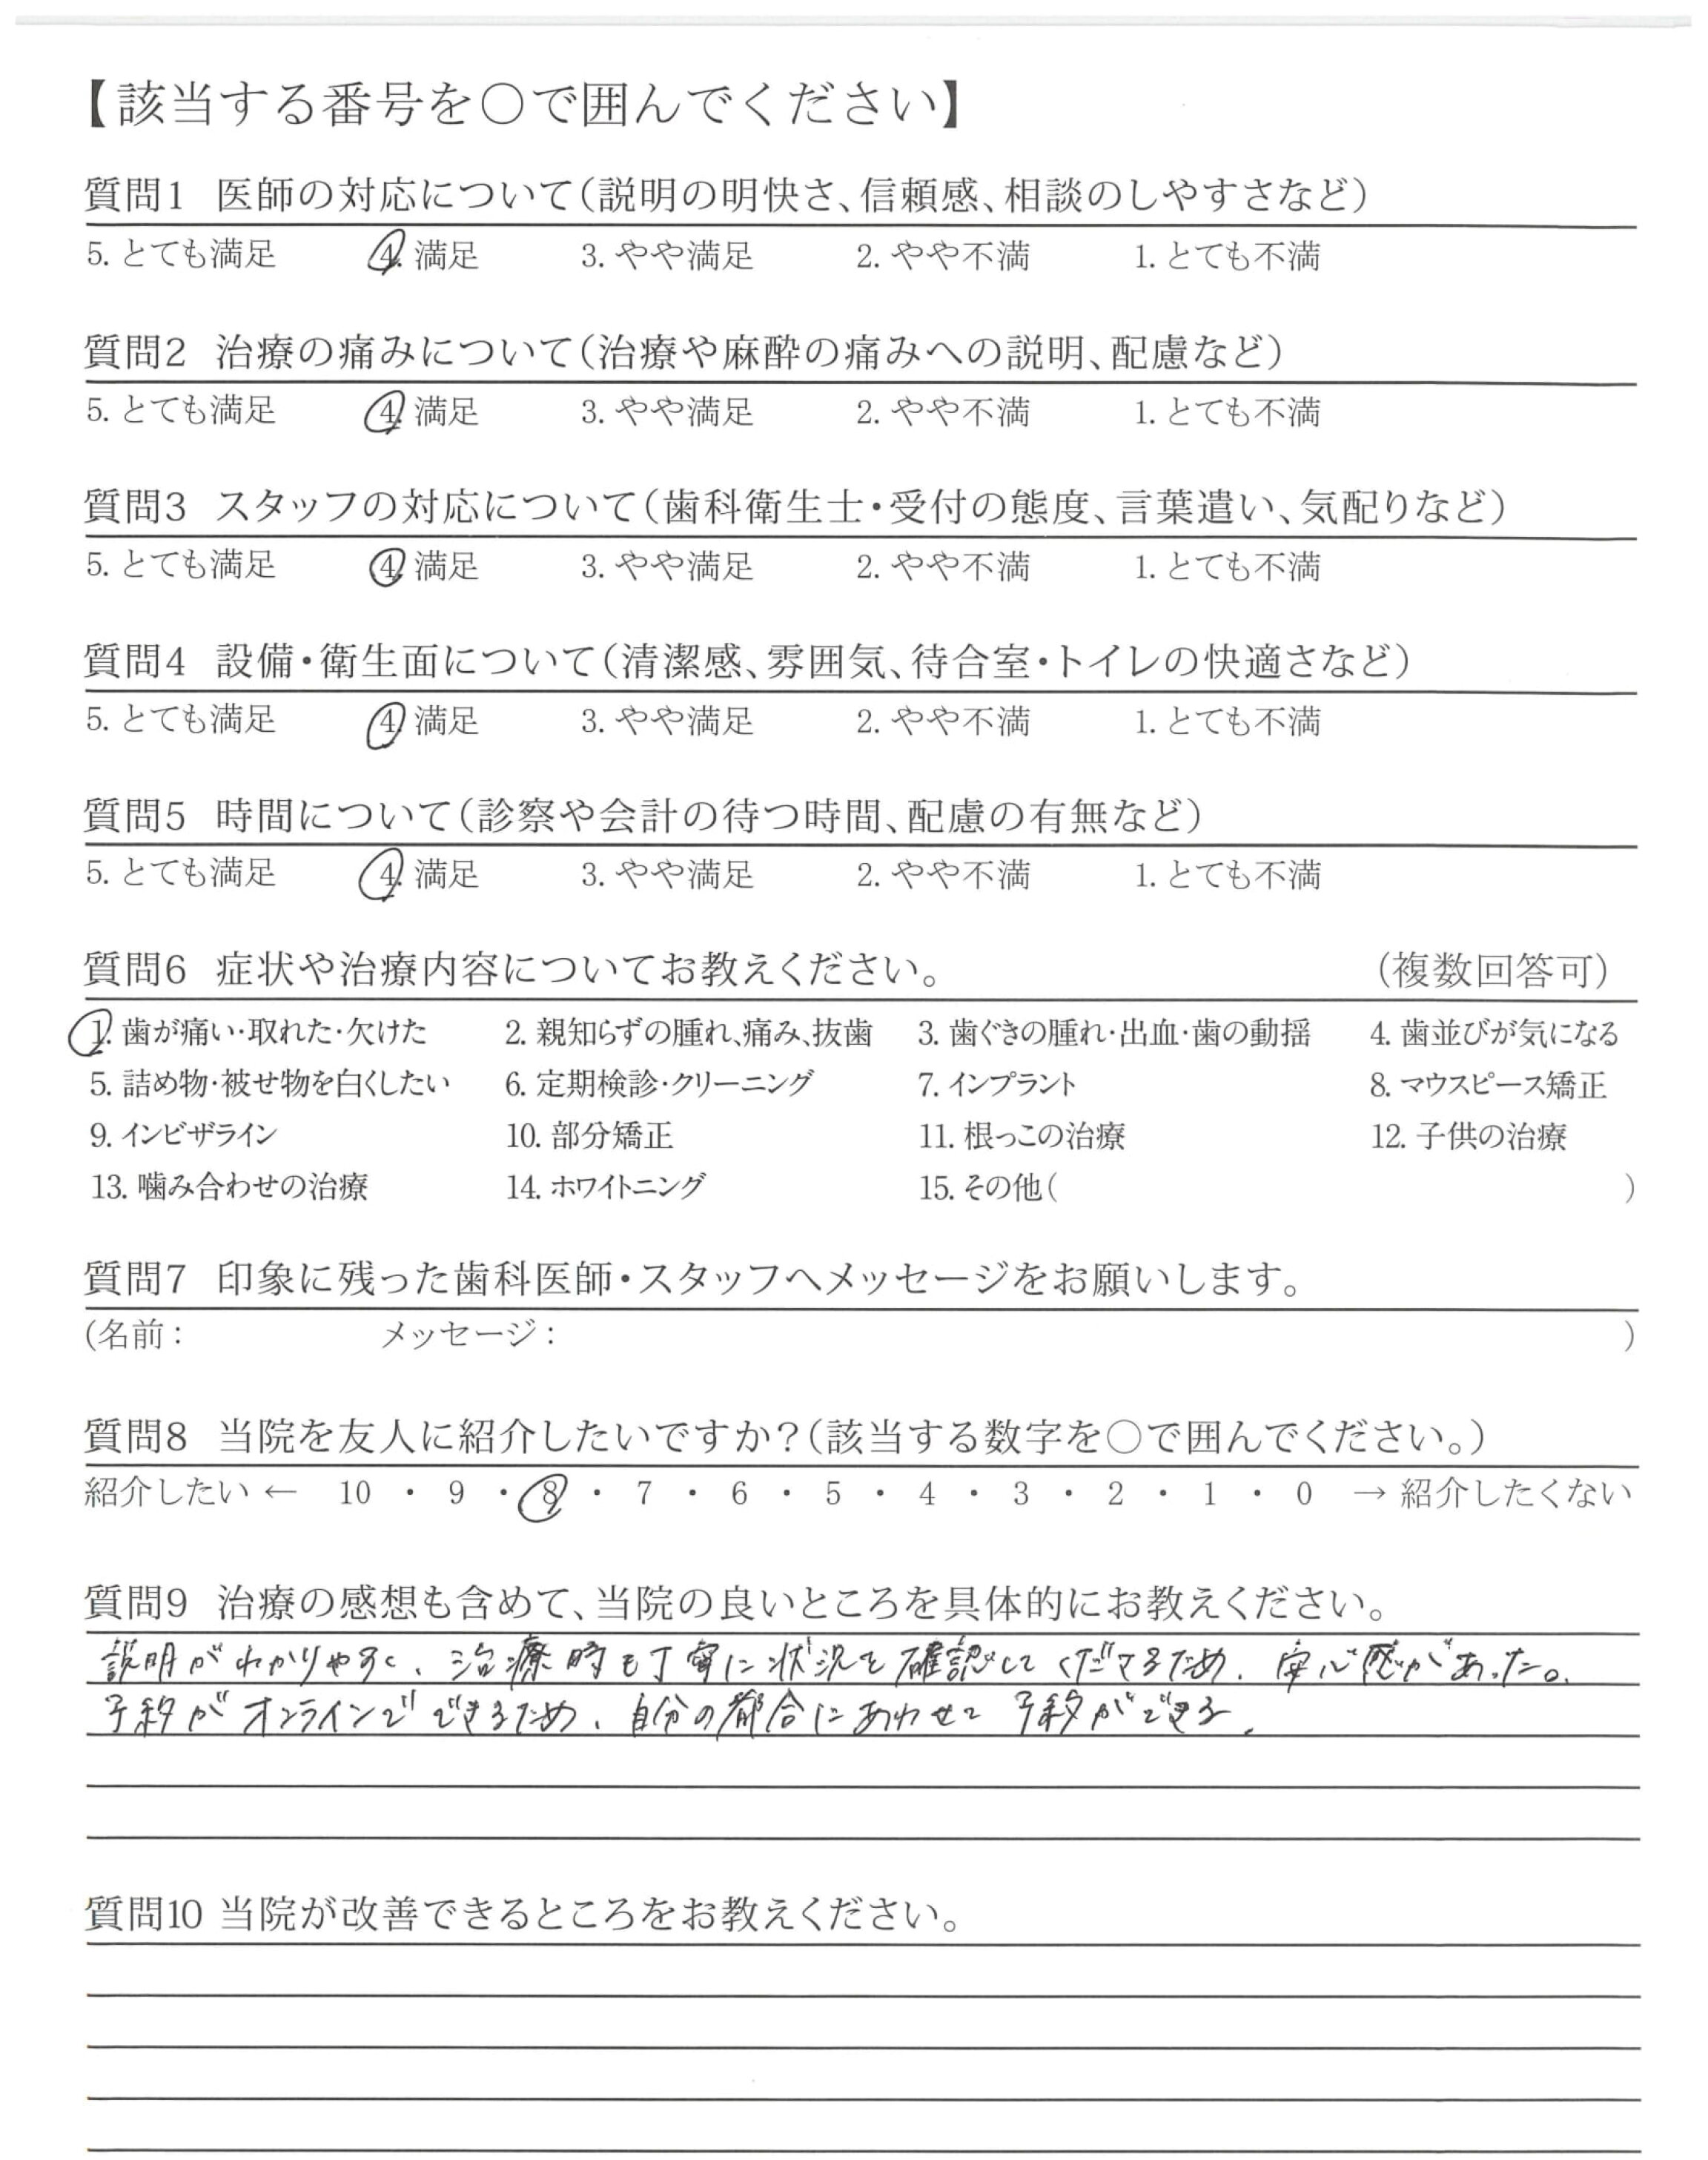 【該当する番号を○で囲んでください】
質問1 医師の対応について(説明の明快さ、信頼感、相談のしやすさなど)
5. とても満足 4. 満足 3. やや満足 2. やや不満 1. とても不満
質問2 治療の痛みについて(治療や麻酔の痛みへの説明、配慮など)
5. とても満足 4. 満足 3. やや満足 2. やや不満 1. とても不満
質問3 スタッフの対応について(歯科衛生士・受付の態度、言葉遣い、気配りなど)
5. とても満足 4. 満足 3. やや満足 2. やや不満 1. とても不満
質問4 設備・衛生面について(清潔感、雰囲気、待合室・トイレの快適さなど)
5. とても満足 4. 満足 3. やや満足 2. やや不満 1. とても不満
質問5 時間について(診察や会計の待つ時間、配慮の有無など)
5. とても満足 4. 満足 3. やや満足 2. やや不満 1. とても不満
質問6 症状や治療内容についてお教えください。 (複数回答可)
1. 歯が痛い・取れた・欠けた 2. 親知らずの腫れ、痛み、抜歯 3. 歯ぐきの腫れ・出血・歯の動揺 4. 歯並びが気になる
5. 詰め物・被せ物を白くしたい 6. 定期検診・クリーニング 7. インプラント 8. マウスピース矯正
9. インビザライン 10. 部分矯正 11. 根っこの治療 12. 子供の治療
13. 噛み合わせの治療 14. ホワイトニング 15. その他( )
質問7 印象に残った歯科医師・スタッフへメッセージをお願いします。
(名前: メッセージ: )
質問8 当院を友人に紹介したいですか?(該当する数字を○で囲んでください。)
紹介したい ← 10 ・ 9 ・ 8 ・ 7 ・ 6 ・ 5 ・ 4 ・ 3 ・ 2 ・ 1 ・ 0 → 紹介したくない
質問9 治療の感想も含めて、当院の良いところを具体的にお教えください。
説明がわかりやすく、治療時も丁寧に状況を確認してくださるため、安心感があった。
予約がオンラインでできるため、自分の都合にあわせて予約ができる。
質問10 当院が改善できるところをお教えください。